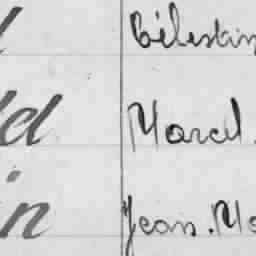 Célestin
ld Marcel.
in Jean. Ma